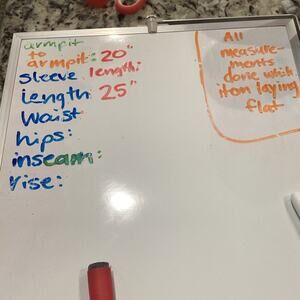 armpit
to
armpit: 20"
sleeve length:
length: 25"
waist
hips:
inseam:
rise:
All
measure-
ments
done with
item laying
flat